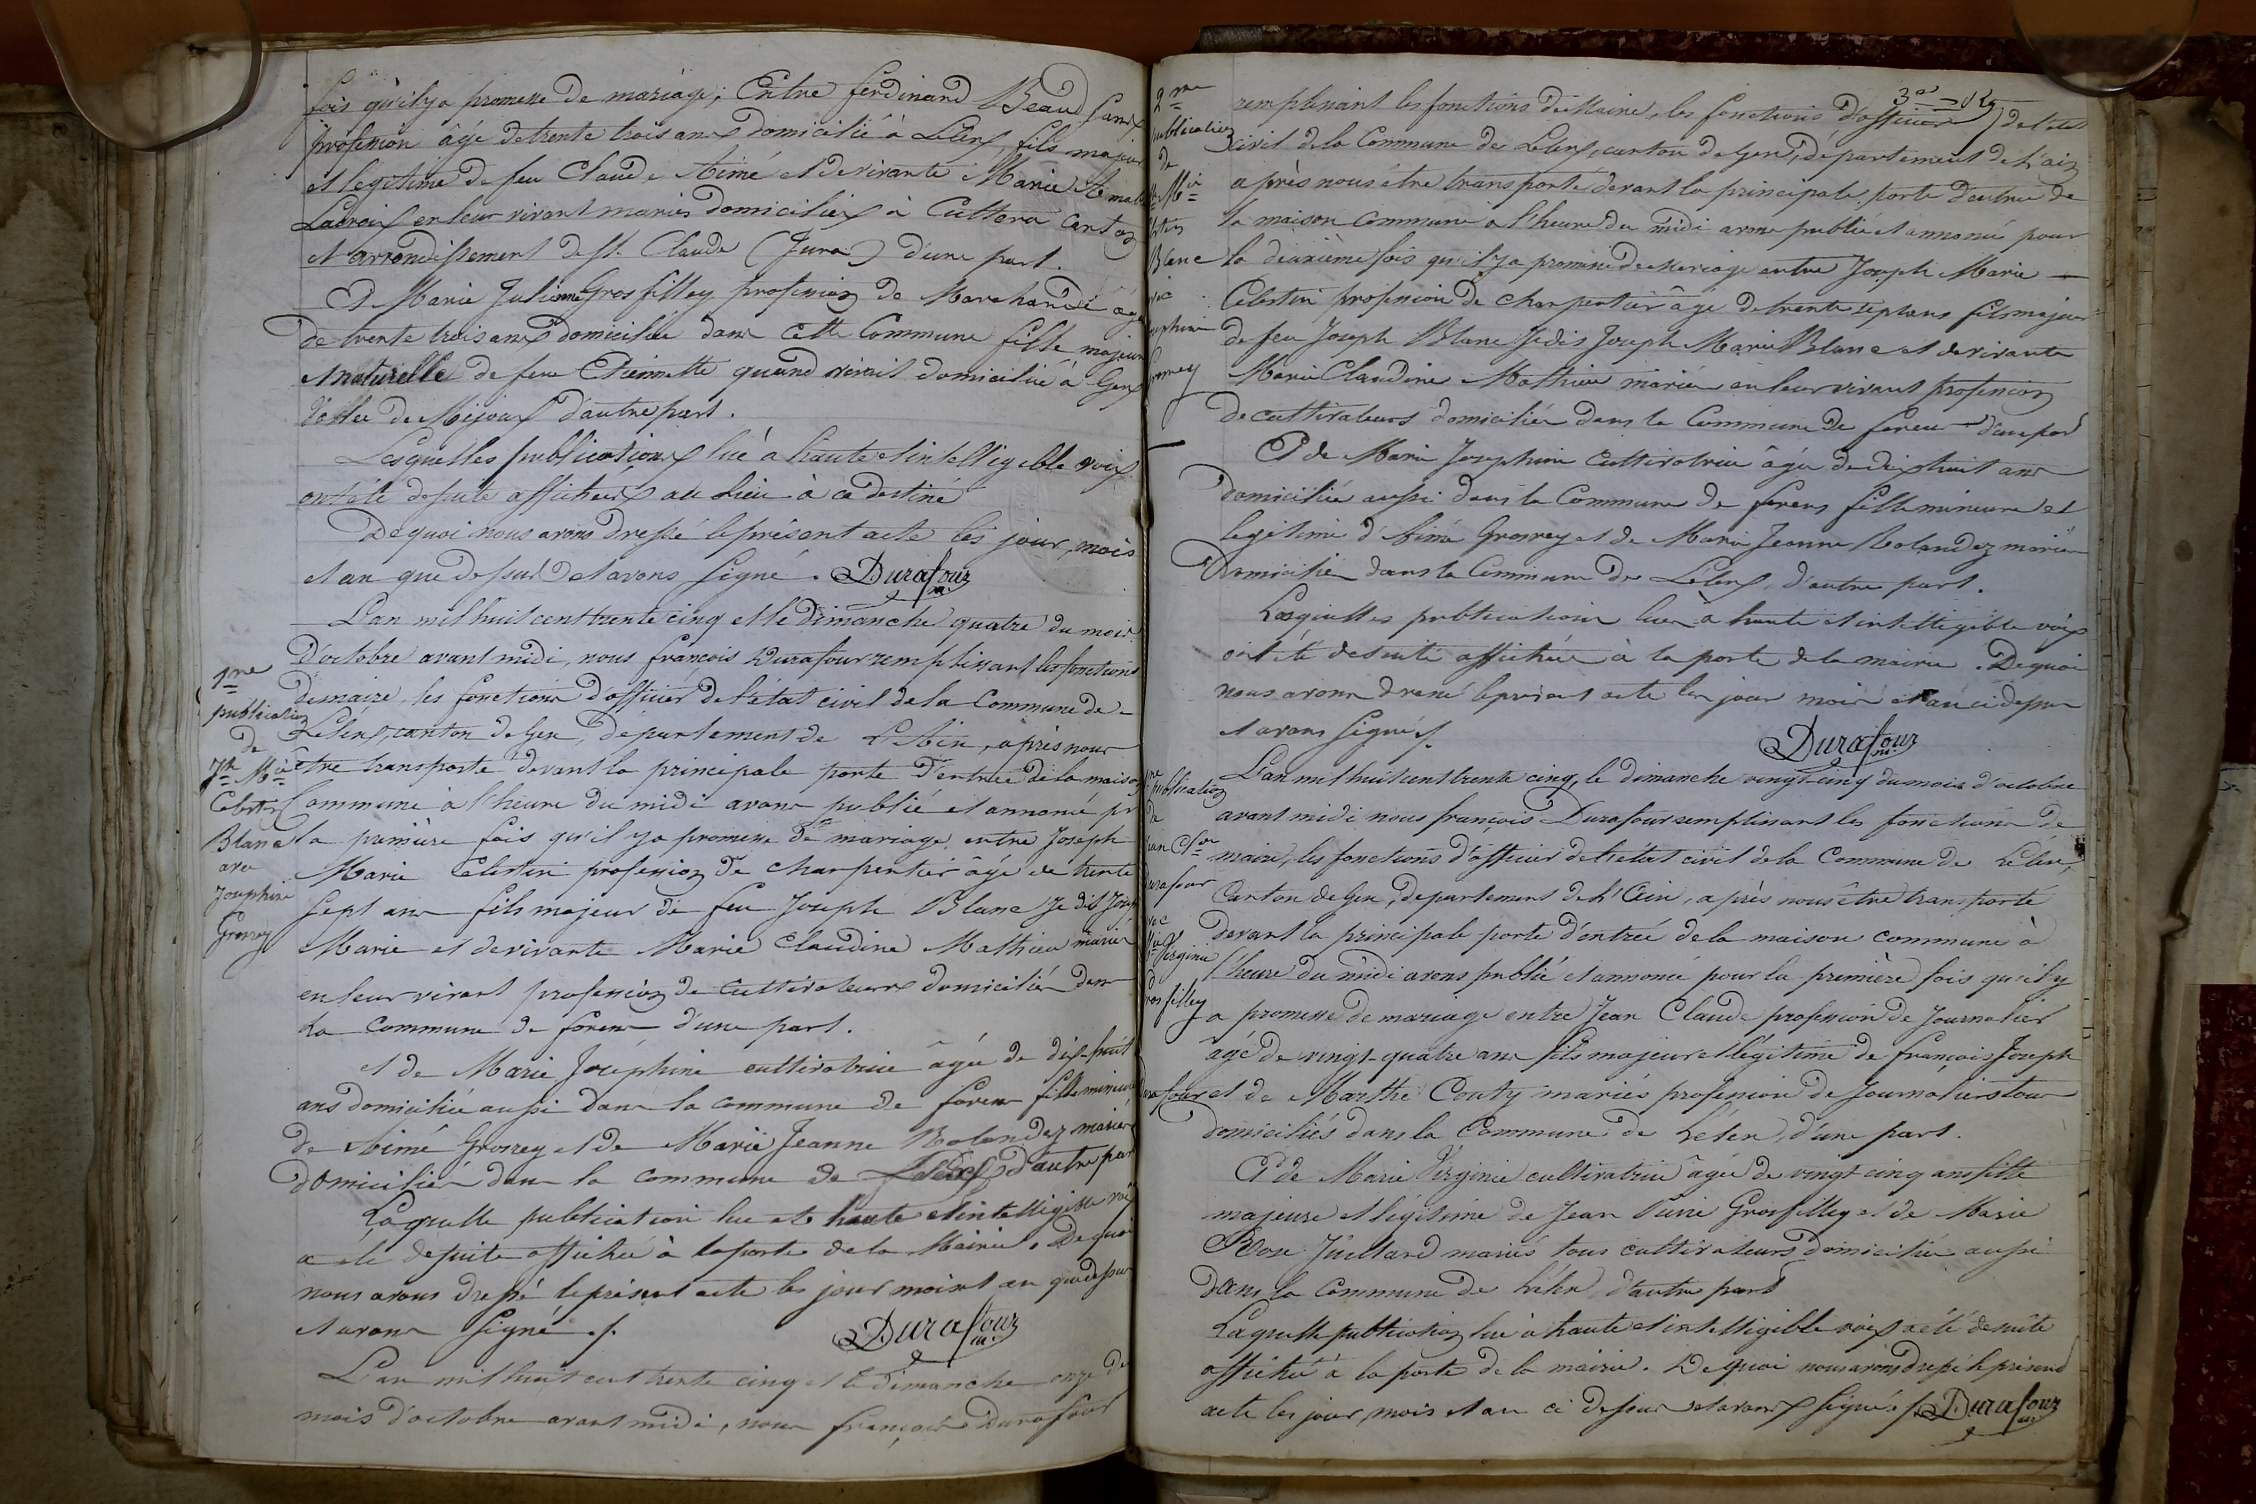 fois qu'il y a promesse de mariage; Entre ferdinand Beaud sans
profession âgé de trente trois ans domicilié à Lélex, fils majeur
et légitime de feu Claude Aimé et de vivante Marie
Lacroix en leur vivant mariés domiciliés à Cuttura canton
et arrondissement de St. Claude (Jura) d'une part.
Et Marie Julienne Grosfilley profession de Marchande âgée
de trente trois ans domiciliée dans cette Commune fille majeure
et naturelle de feue Etiennette quand vivait domiciliée à Gex
vallée de Mijoux d'autre part.
Lesquelles publications lue à haute et intelligible voix
ont été de suite affichées au lieu à ce destiné
De quoi nous avons dressé le présent acte les jour, mois
et an que dessus et avons signé. Durafour
L'an mil huit cent trente cinq et le dimanche quatre du mois
1re
publication
de
Jh Mie
Celestin
Blanc
avec
Josephine
Grosrey
D'octobre avant midi, nous françois Durafour remplissant les fonctions
de maire, les fonctions d'officier de l'état civil de la Commune de
Lélex, canton de Gex, département de L'Ain, après nous
être transporté devant la principale porte d'entrée de la maison
Commune à l'heure du midi avons publié et annoncé pr
la première fois qu'il y a promesse de mariage entre Joseph
Marie Celestin profession de charpentier âgé de trente
sept ans fils majeur de feu Joseph Blanc Je dis Joseph
Marie et de vivante Marie Claudine Mathieu mariés
en leur vivant profession de cultivateurs domiciliés dans
la commune de forens d'une part.
et de Marie Joséphine cultivatrice âgée de dix-huit
ans domiciliée aussi dans la commune de forens fille mineure
de Aimé Grosrey et de Marie Jeanne Rolandez mariés
domiciliés dans la commune de Lélex d'autre part
Laquelle publication lue à haute et intelligible voix
a été de suite affichée à la porte de la Mairie. De quoi
nous avons dressé le présent acte les jour mois et an que dessus
et avons signé./. Durafour
L'an mil huit cent trente cinq et le dimanche onze du
mois d'octobre avant midi, nous françois Durafour
2me
publication
de
Jh Mie
Blanc
Grosrey
remplissant les fonctions de Maire, les fonctions d'officier de l'état
civil de la Commune de Lélex, canton de Gex, département de L'ain
après nous être transporté devant la principale porte d'entrée de
la maison Commune à l'heure du midi avons publié et annoncé pour
la deuxième fois qu'il y a promesse de mariage entre Joseph Marie
Celestin profession de charpentier âgé de trente sept ans fils majeur
de feu Joseph Blanc Je dis Joseph Marie Blanc et de vivante
Marie Claudine Mathieu mariés en leur vivant profession
de cultivateurs domiciliés dans la Commune de forens d'une part
Et de Marie Josephine cultivatrice âgée de dix huit ans
domiciliée aussi dans la Commune de forens fille mineure et
legitime d'Aimé Grosrey et de Marie Jeanne Rolandez mariés
Domiciliés dans la Commune de Lélex, d'autre part.
Lesquelles publications lues à haute et intelligible voix
ont été de suite affichées à la porte de la mairie. De quoi
nous avons dressé le présent acte les jour mois et an ci dessus
et avons signés/.
Durafour
publication
de
Jean Cl
Durafour
avec
Virginie
Grosfilley
L'an mil huit cent trente cinq, le dimanche vingt-cinq du mois d'octobre
avant midi nous françois Durafour remplissant les fonctions de
maire, les fonctions d'officier de l'état civil de la Commune de Lélex,
Canton de Gex, département de L'Ain, après nous être transporté
devant la principale porte d'entrée de la maison commune à
l'heure du midi avons publié et annoncé pour la première fois qu'il y
a promesse de mariage entre Jean Claude profession de Journalier
âgé de vingt-quatre ans fils majeur et légitime de françois Joseph
Durafour et de Marthe Couty mariés profession de Journaliers tous
Domiciliés dans la Commune de Lélex, d'une part.
Et de Marie Virginie cultivatrice âgée de vingt cinq ans fille
majeure et légitime de Jean Pierre Grosfilley et de Marie
Rose Juillard mariés tous cultivateurs domiciliés aussi
dans la Commune de Lélex d'autre part
Laquelle publication lue à haute et intelligible voix a été de suite
affichée à la porte de la mairie. De quoi nous avons dressé le présent
acte les jour, mois et an ci dessus et avons signé./. Durafour